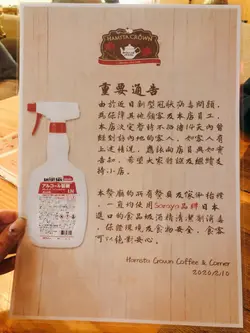 HAMISTA CROWN
重要通告
由於近日新型冠狀病毒問題，
為保障其他顧客及本店員工，
本店決定暫時不招待14天內曾
經到訪內地的客人，如客人有
上述情況，應該向店員與如實
告知，希望大家諒解及繼續支
持小店。
本餐廳的所有餐具及家俬枱椅
，一直均使用Saraya品牌日本
進口的食品級酒精清潔劑消毒
，保證環境及食物安全，食客
可以絕對安心。
Hamista Crown Coffee & Corner
2020/2/10
アルコール製剤